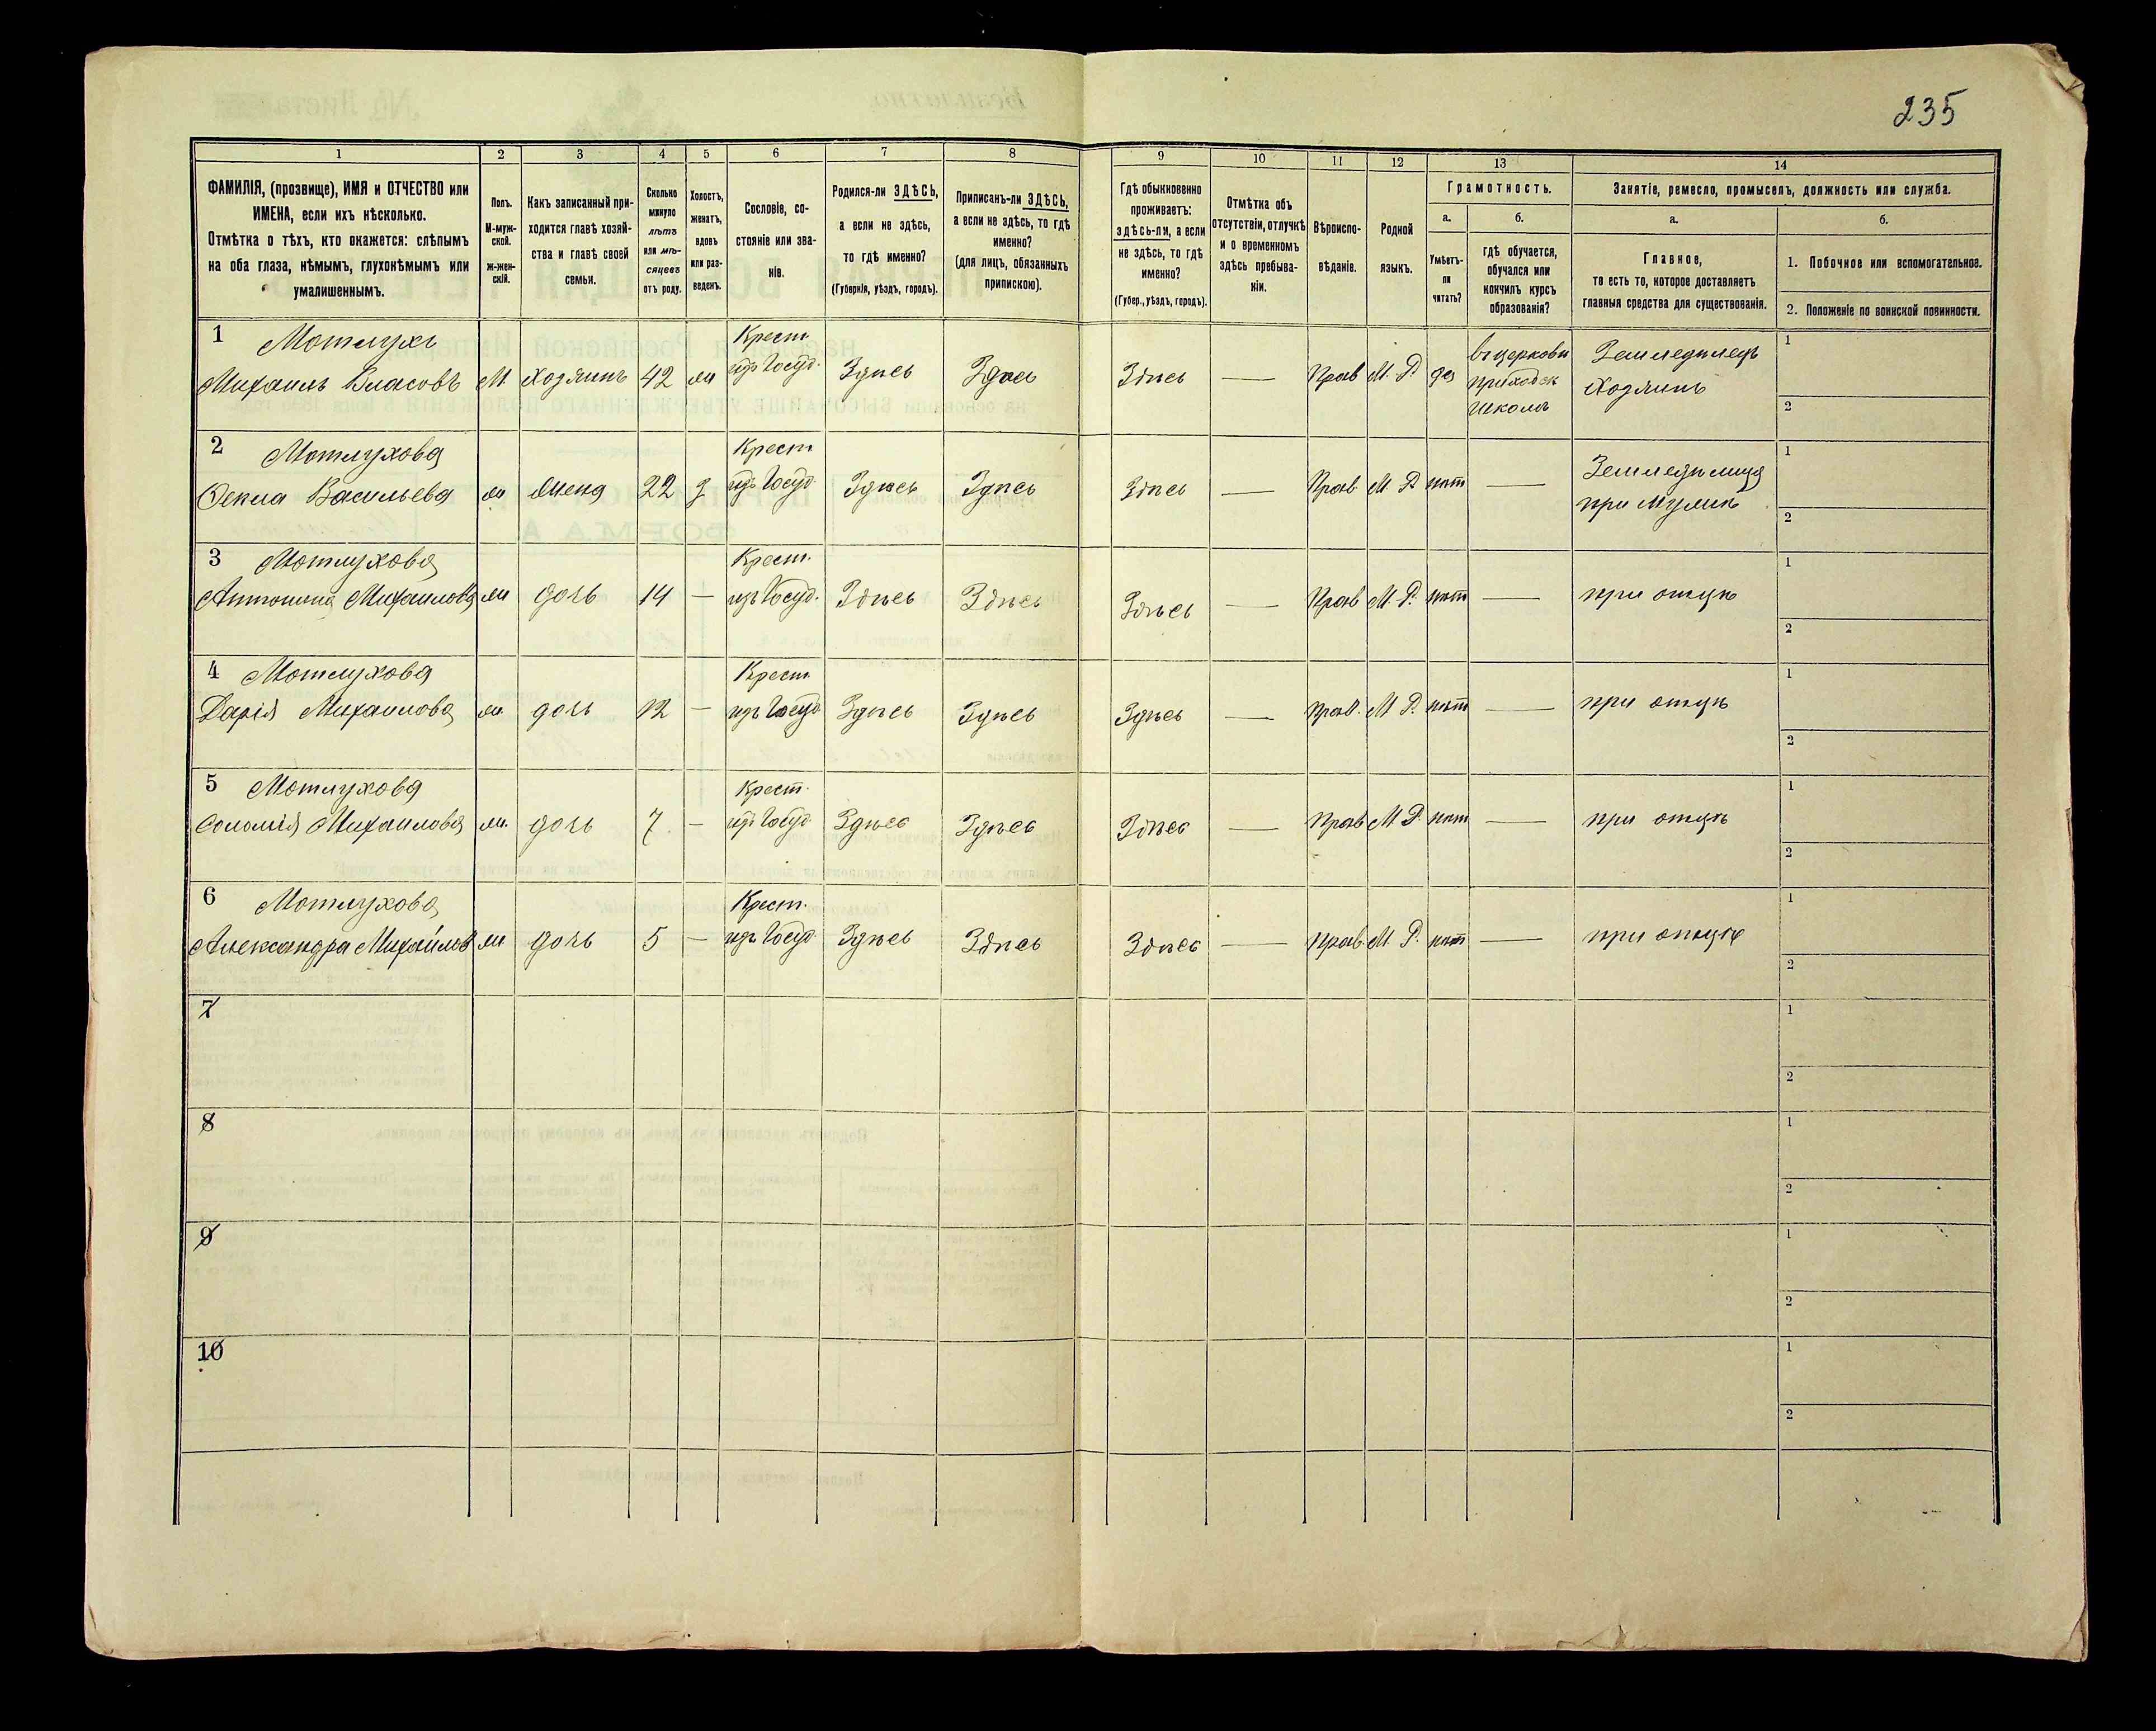 235
1 2 3 4 5 6 7 8 9 10 11 12 13 14
ФАМИЛІЯ, (прозвище), ИМЯ и ОТЧЕСТВО или
ИМЕНА, если ихъ нѣсколько.
Отмѣтка о тѣхъ, кто окажется: слѣпымъ
на оба глаза, нѣмымъ, глухонѣмымъ или
умалишеннымъ.
Полъ.
М-муж-
ской.
ж-жен-
скій.
Какъ записанный при-
ходится главѣ хозяй-
ства и главѣ своей
семьи.
Сколько
минуло
лѣтъ
или мѣ-
сяцевъ
отъ роду.
Холостъ,
женатъ,
вдовъ
или раз-
веденъ.
Сословіе, со-
стояніе или зва-
ніе.
Родился-ли ЗДѢСЬ,
а если не здѣсь,
то гдѣ именно?
(Губернія, уѣздъ, городъ).
Приписанъ-ли ЗДѢСЬ,
а если не здѣсь, то гдѣ
именно?
(для лицъ, обязанныхъ
припискою).
Гдѣ обыкновенно
проживаетъ:
здѣсь-ли, а если
не здѣсь, то гдѣ
именно?
(Губер., уѣздъ, городъ).
Отмѣтка объ
отсутствіи, отлучкѣ
и о временномъ
здѣсь пребыва-
ніи.
Вѣроиспо-
вѣданіе.
Родной
языкъ.
Грамотность.
а.
Умѣетъ-
ли
читать?
б.
гдѣ обучается,
обучался или
кончилъ курсъ
образованія?
Занятіе, ремесло, промыселъ, должность или служба.
а.
Главное,
то есть то, которое доставляетъ
главныя средства для существованія.
б.
1. Побочное или вспомогательное.
2. Положеніе по воинской повинности.
1 Мотлухъ Крест. въ церковн Земледѣлецъ 1
Михаилъ Власовъ М. Хозяинъ 42 ж изъ Госуд. Здѣсь Здѣсь Здѣсь — Прав М. Р. да приходск Хозяинъ
школѣ 2
2 Мотлухова Крест Земледѣлица 1
Фекла Васильева ж Жена 22 з изъ Госуд. Здѣсь Здѣсь Здѣсь — Прав М. Р. нѣт — при мужѣ 2
3 Мотлухова Крест. 1
Антонина Михаилова ж дочь 14 — изъ Госуд. Здѣсь Здѣсь Здѣсь — Прав М. Р. нѣт — при отцѣ 2
4 Мотлухова Крест 1
Дарія Михаилова ж дочь 12 — изъ Госуд Здѣсь Здѣсь Здѣсь — Прав. М Р. нѣт — при отцѣ 2
5 Мотлухова Крест. 1
Соломія Михаилова ж. дочь 7 — изъ Госуд Здѣсь Здѣсь Здѣсь — Прав М Р. нѣт — при отцѣ 2
6 Мотлухова Крест. 1
Александра Михайлов ж дочь 5 — изъ Госуд Здѣсь Здѣсь Здѣсь — Прав М. Р. нѣт — при отцѣ 2
7 1
2
8 1
2
9 1
2
10 1
2